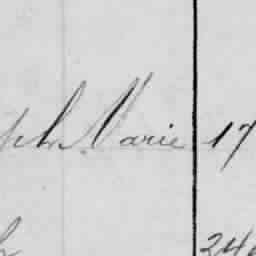 ph Marie 17
24